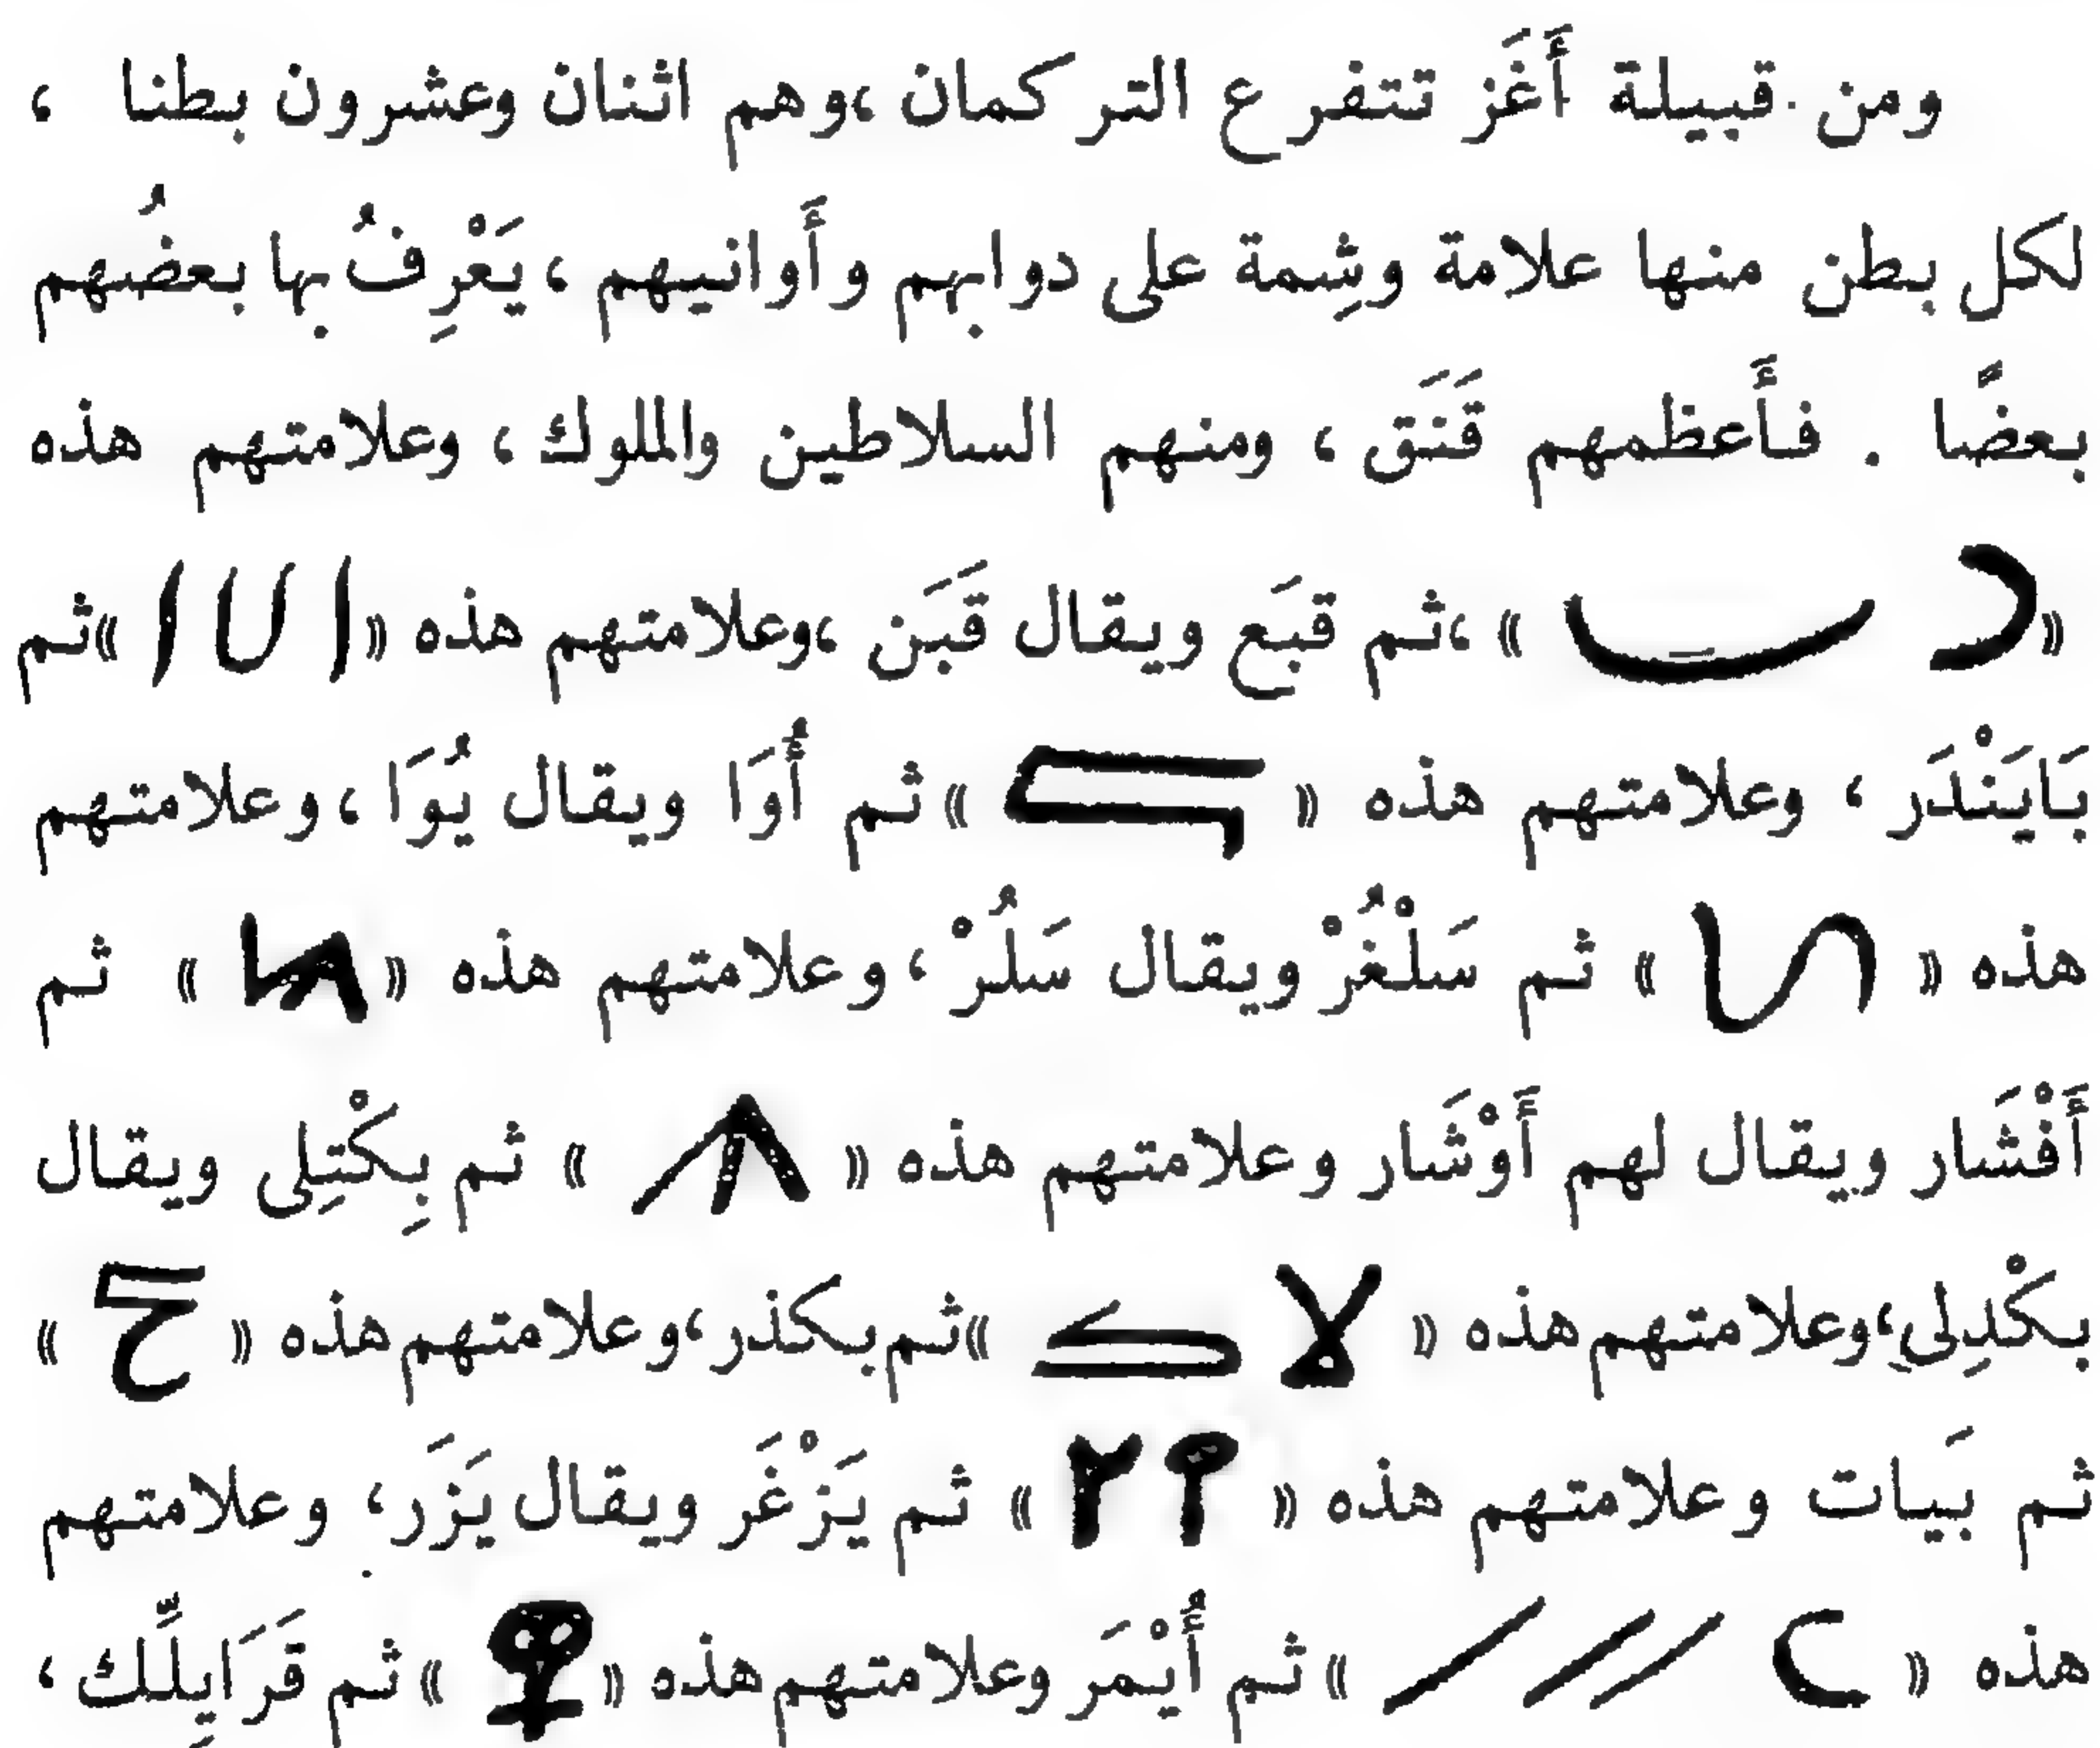 ومن قبيلة أَغَز تتفرع التركمان ،وهم اثنان وعشرون بطنا ،
لكل بطن منها علامة وشِمة على دوابهم وأَوانيهم ، يَعْرِفُ بها بعضُهم
بعضًا . فأَعظمهم قَنَق ، ومنهم السلاطين والملوك ، وعلامتهم هذه
« » ،ثم قبَع ويقال قَبَن ،وعلامتهم هذه « » ثم
بَايَنْدَر ، وعلامتهم هذه « » ثم أُوَا ويقال يُوَا ، وعلامتهم
هذه « » ثم سَلْغُرْ ويقال سَلُرْ ، وعلامتهم هذه « » ثم
أَفْشَار ويقال لهم أَوْشَار وعلامتهم هذه « » ثم بِكْتِلِى ويقال
بكْدِلِى ،وعلامتهم هذه « » ثم بكذر ،وعلامتهم هذه « »
ثم بَيات وعلامتهم هذه « » ثم يَزْغَر ويقال يَزَر ، وعلامتهم
هذه « » ثم أُيْمَر وعلامتهم هذه « » ثم قَرَايِلَّك ،